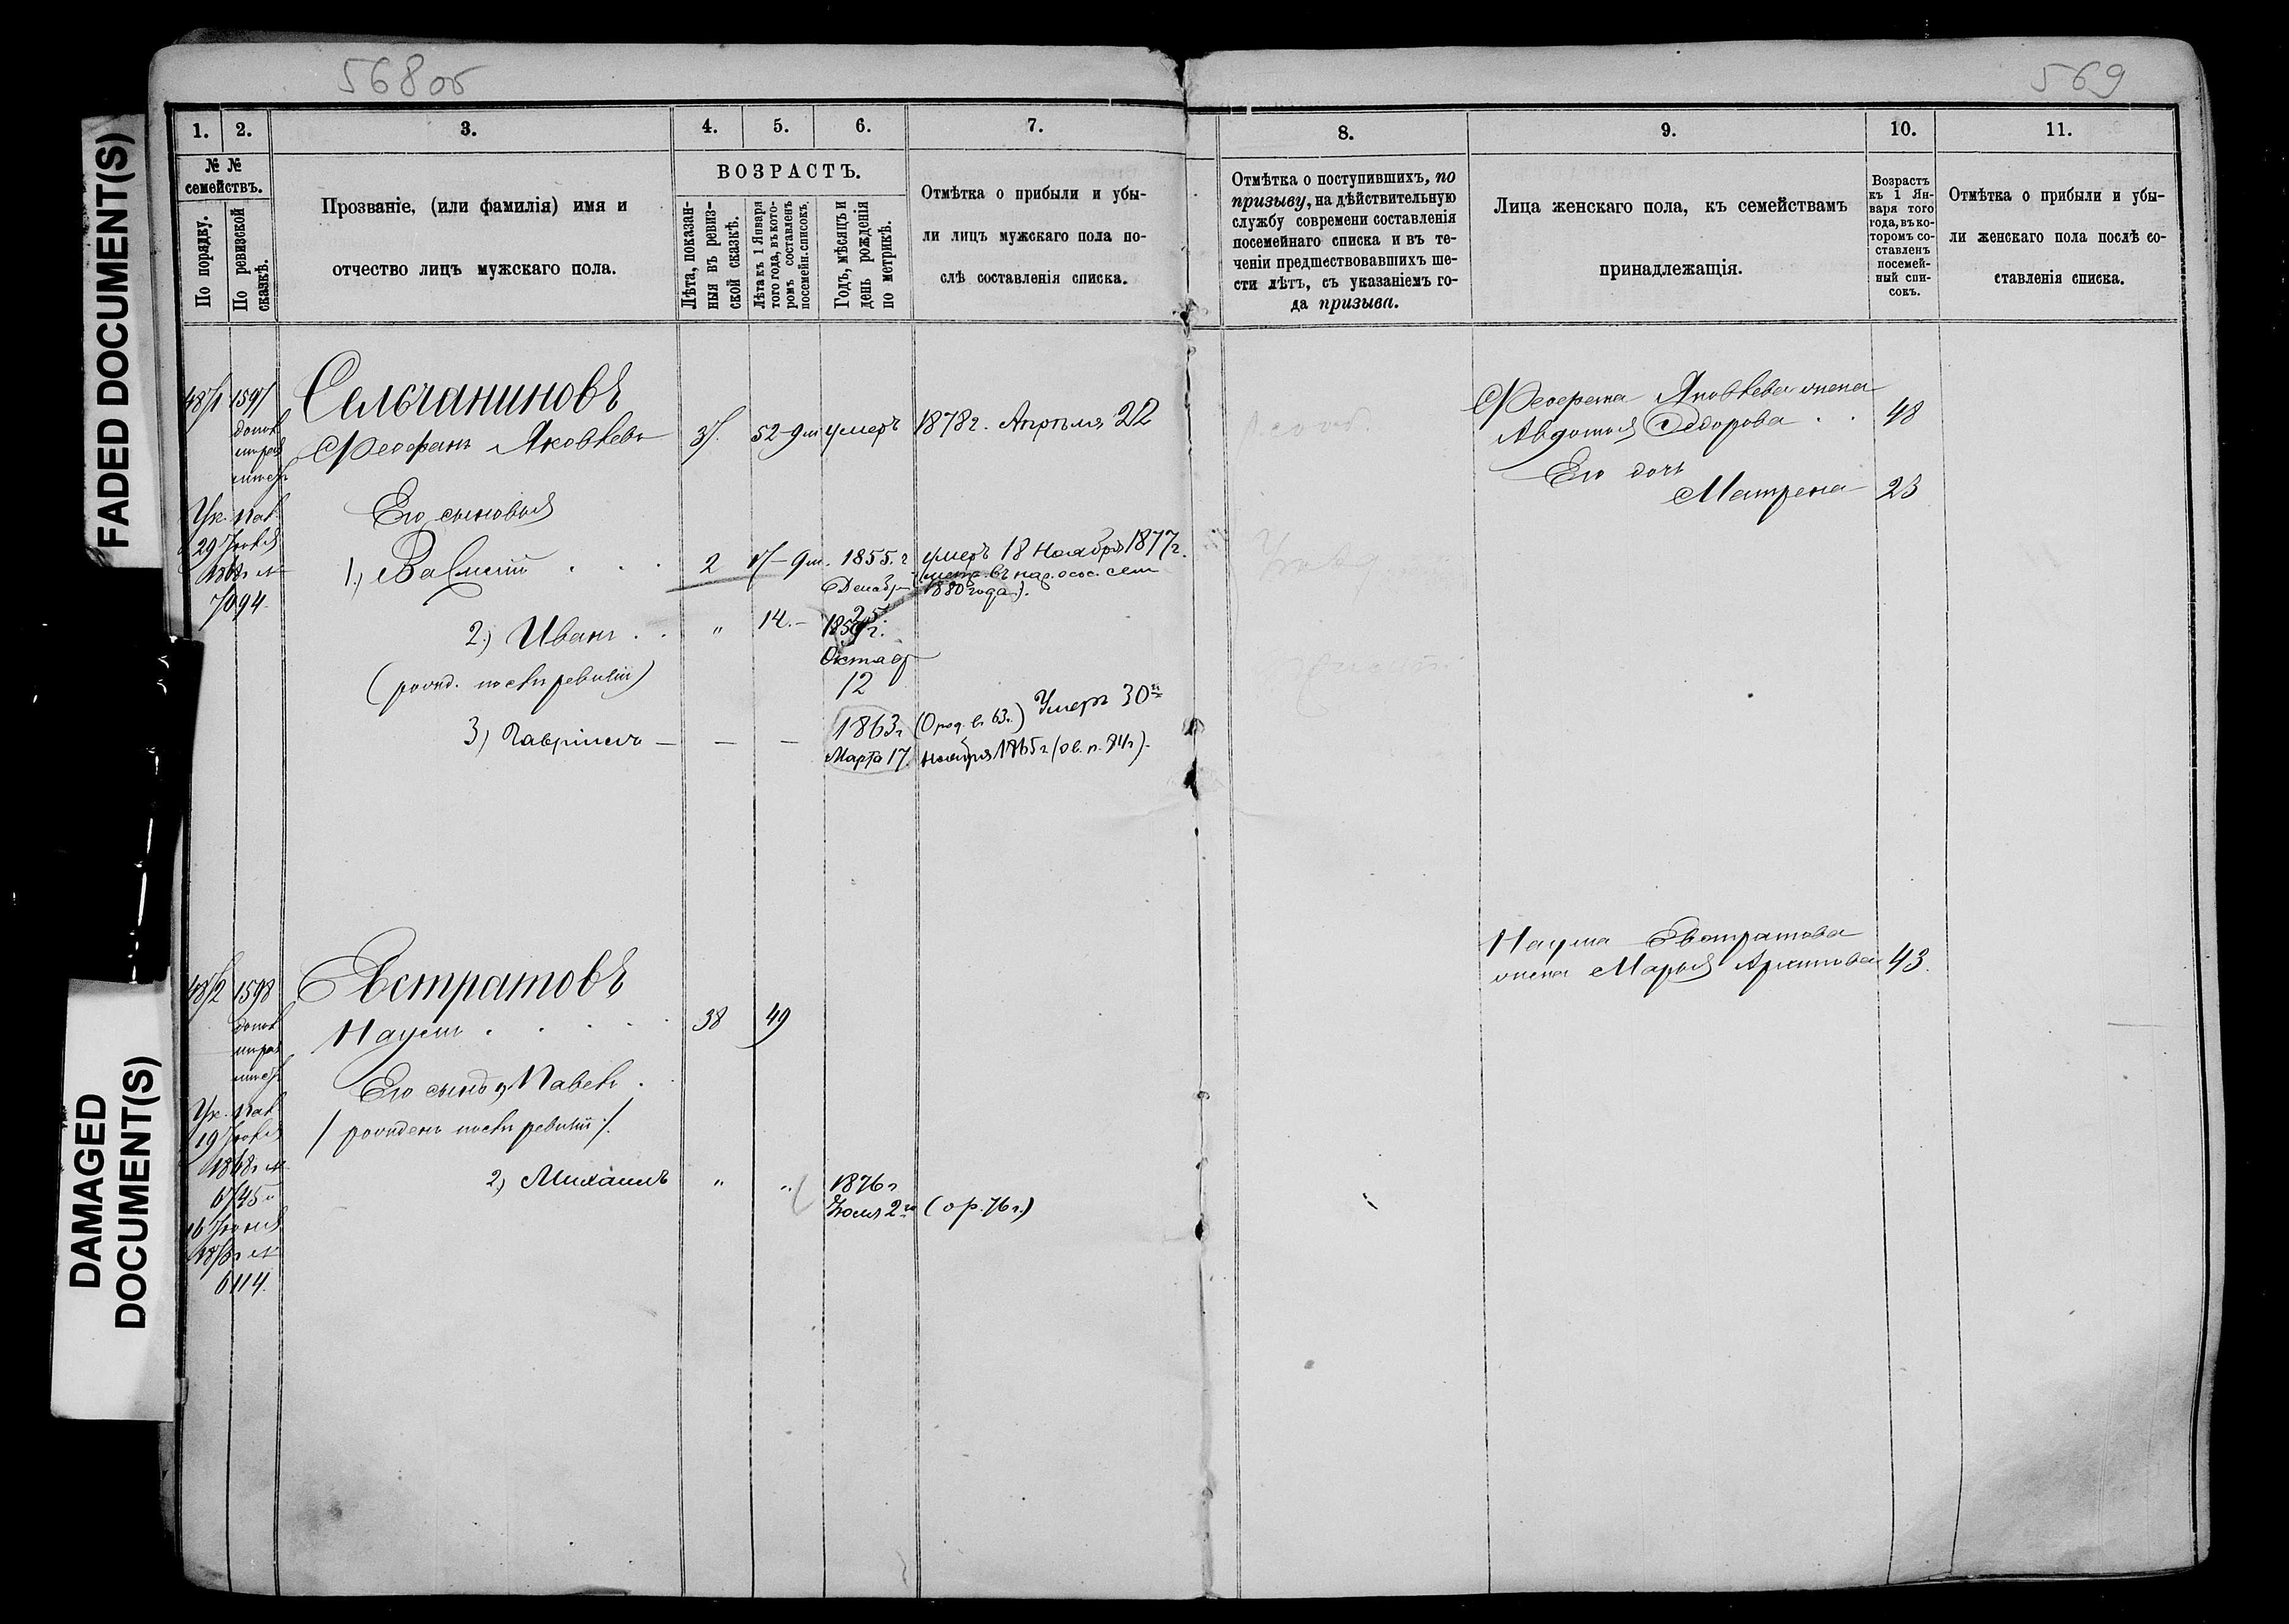 568об
569
FADED DOCUMENT(S)
DAMAGED
DOCUMENT(S)
1.
2.
3.
4.
5.
6.
7.
8.
9.
10.
11.
№ №
семействъ.
По порядку.
По ревизской
сказкѣ.
Прозваніе, (или фамилія) имя и
отчество лицъ мужскаго пола.
ВОЗРАСТЪ.
Лѣта, показан-
ныя въ ревиз-
ской сказкѣ.
Лѣта къ 1 Января
того года, въ кото-
ромъ составленъ
посемейн. списокъ.
Годъ, мѣсяцъ и
день рожденія
по метрикѣ.
Отмѣтка о прибыли и убы-
ли лицъ мужскаго пола по-
слѣ составленія списка.
Отмѣтка о поступившихъ, по
призыву, на дѣйствительную
службу современи составленія
посемейнаго списка и въ те-
ченіи предшествовавшихъ ше-
сти лѣтъ, съ указаніемъ го-
да призыва.
Лица женскаго пола, къ семействамъ
принадлежащія.
Возрастъ
къ 1 Ян-
варя того
года, въ ко-
торомъ со-
ставленъ
посемей-
ный спи-
сокъ.
Отмѣтка о прибыли и убы-
ли женскаго пола послѣ со-
ставленія списка.
1597
Сельчаниновъ
Феофанъ Яковлевъ
52-9м умеръ 1878г. Апрѣля 22
Феофана Яковлева жена
Авдотья Федорова . . 48
Его дочь
Матрена 23
Ук. Пал.
29 Іюля
7094.
Его сыновья
1.) Василій . . . 2 17-9м. 1855. г умеръ 18 Ноября 1877г.
Декабр
25
1880 года).
2.) Иванъ . . " 14.-
Октябр
12
(рожд. послѣ ревизіи)
3) Гавріилъ — — — 1863г (О род. въ 63г.) Умеръ 30го
Марта 17. Ноября 1865г
1598
Евстратовъ
Наумъ . . . . . 38 49
Наума Евстратова
жена Марья 43.
Его сынъ 1, Павелъ .
/ рожденъ послѣ ревизіи /.
Ук. Пал.
19 Іюля
1868г №
6745 и
16 Іюня
6114.
2) Михаилъ " " 1876г
Іюля 2го (о р. 76г.)